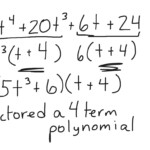 t⁴+20t³+6t+24
³(t+4) 6(t+4)
5t³+6)(t+4)
ctored a 4 term
polynomial